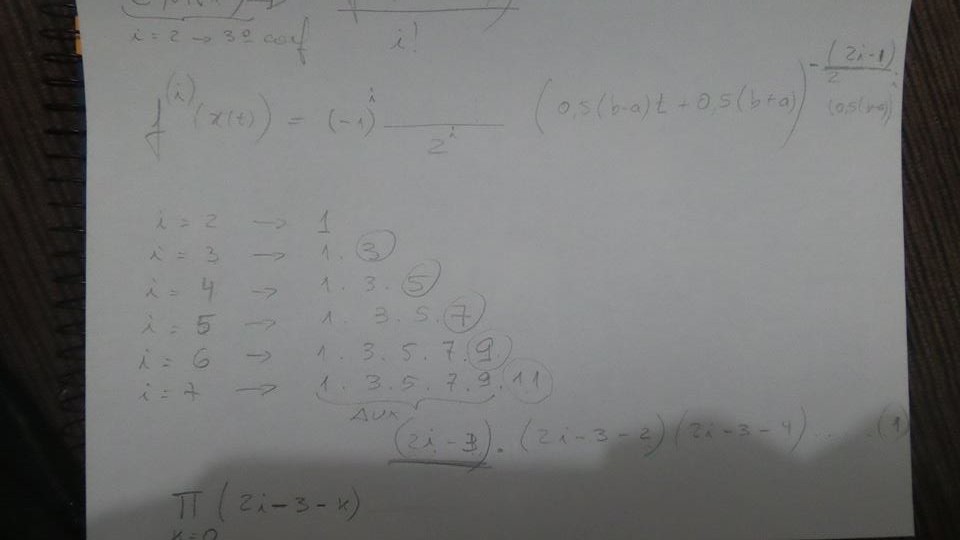 i = 2 → 3º coef
i!
f^(i) (x(t)) = (-1)^i ____ / 2^i (0,5(b-a)t + 0,5(b+a))^-(2i-1)/2 (0,5(b-a))^i
i = 2 → 1
i = 3 → 1 . 3
i = 4 → 1 . 3 . 5
i = 5 → 1 . 3 . 5 . 7
i = 6 → 1 . 3 . 5 . 7 . 9
i = 7 → 1 . 3 . 5 . 7 . 9 . 11
AUX
(2i-3) . (2i-3-2) (2i-3-4) ... (1)
Π (2i-3-k)
k=0